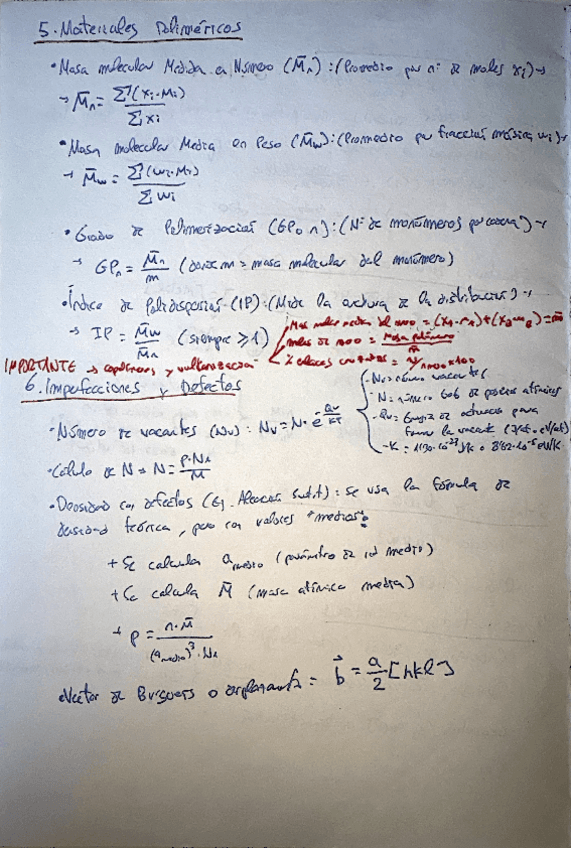 5. Materiales Poliméricos
• Masa molecular Media en Número (M̄n): (Promedio por nº de moles xi) →
→ M̄n = Σ(xi·Mi) / Σxi
• Masa molecular Media en Peso (M̄w): (Promedio por fracción másica wi) →
→ M̄w = Σ(wi·Mi) / Σwi
• Grado de Polimerización (GP o n): (Nº de monómeros por cadena) →
→ GPn = M̄n / m (donde m = masa molecular del monómero)
• Índice de Polidispersión (IP): (Mide la anchura de la distribución) →
→ IP = M̄w / M̄n (siempre ≥ 1)
Mas molar media del mero =
moles de mero = Masa polímero
% enlaces
IMPORTANTE → copolímeros y vulcanización
6. Imperfecciones y Defectos
• Número de vacantes (Nv): Nv = N · e^(-Qv/KT)
- Nv = número vacantes
- N = número total de posiciones atómicas
- Qv = Energía de activación para
formar la vacante
- K = 1'38·10⁻²³ J/K o 8'62·10⁻⁵ eV/K
• Cálculo de N → N = ρ·NA / M
• Densidad con defectos (Ej. Aleación Sustit): Se usa la fórmula de
densidad teórica, pero con valores "medios":
+ Se calcula a medio (parámetro de red medio)
+ Se calcula M̄ (masa atómica media)
→ ρ = n·M̄ / (a medio)³·NA
• Vector de Burguers o = b⃗ = a/2 [hkl]